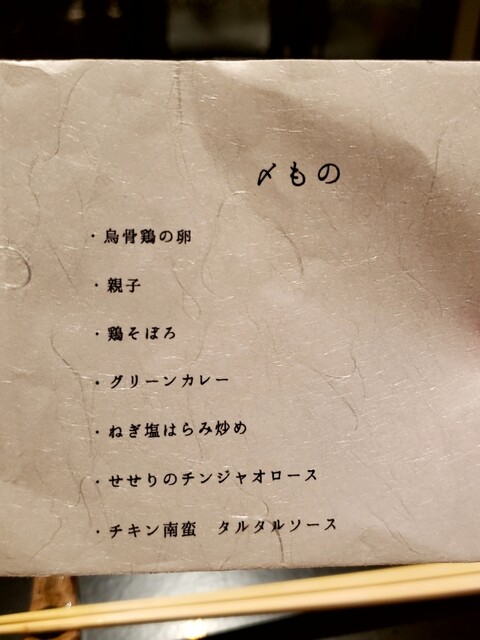 〆もの
・烏骨鶏の卵
・親子
・鶏そぼろ
・グリーンカレー
・ねぎ塩はらみ炒め
・せせりのチンジャオロース
・チキン南蛮　タルタルソース